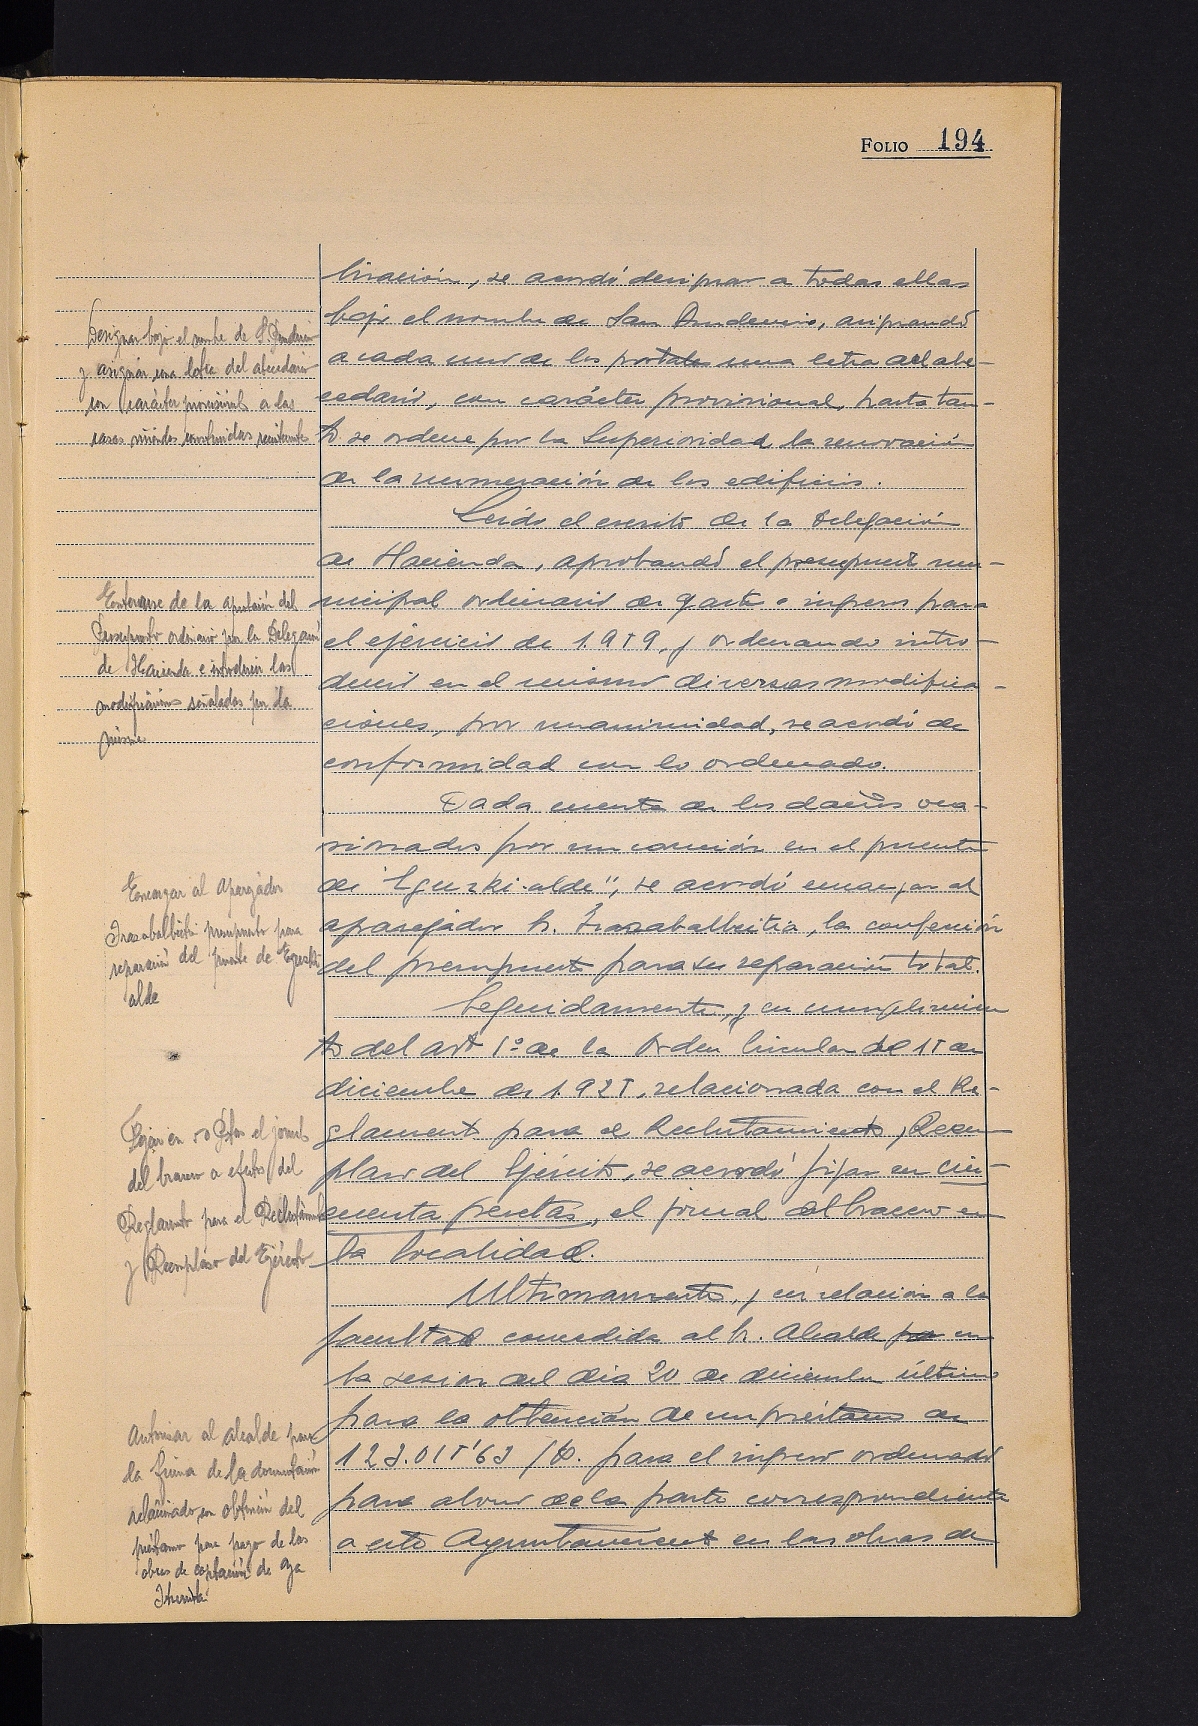 FOLIO 194
lización, se acordó designar a todas ellas
bajo el nombre de San Prudencio, asignando
a cada uno de los portales una letra del abe-
cedario, con carácter provisional, hasta tan-
to se ordene por la Superioridad la renovación
de la numeración de los edificios.
Leído el escrito de la Delegación
de Hacienda, aprobando el presupuesto mu-
nicipal ordinario de gastos e ingresos para
el ejercicio de 1.959, y ordenando intro-
ducir en el mismo diversas modifica-
ciones, por unanimidad, se acordó de
conformidad con lo ordenado.
Dada cuenta de los daños oca-
sionados por un camión en el puente
de "Eguzki-alde", se acordó encargar al
aparejador Sr. Irazabalbeitia, la confección
del presupuesto para su reparación total.
Seguidamente, y en cumplimien
to del art 1º de la Orden Circular de 15 de
diciembre de 1.925, relacionada con el Re-
glamento para el Reclutamiento y Reem
plazo del Ejército, se acordó fijar en cin-
cuenta pesetas, el jornal del bracero en
la localidad.
Ultimamente, y en relación a la
facultad concedida al Sr. Alcalde por en
la sesion del dia 20 de diciembre último
para la obtención de un préstamo de
123.015'63 Pts. para el ingreso ordenado
para abono de la parte correspondiente
a este Ayuntamiento en las obras de
Designar bajo el nombre de S. Prudencio
y asignar una letra del abecedario
con carácter provisional a las
casas viviendas construidas recientemente
Enterarse de la aprobación del
Presupuesto ordinario por la Delegación
de Hacienda e introducir las
modificaciones señaladas por la
misma
Encargar al aparejador
Irazabalbeitia presupuesto para
reparación del puente de Eguzki
alde
Fijar en 50 Ptas el jornal
del bracero a efectos del
Reglamento para el Reclutamiento
y Reemplazo del Ejército
Autorizar al alcalde para
la firma de la documentación
relacionada con obtención del
préstamo para pago de las
obras de captación de